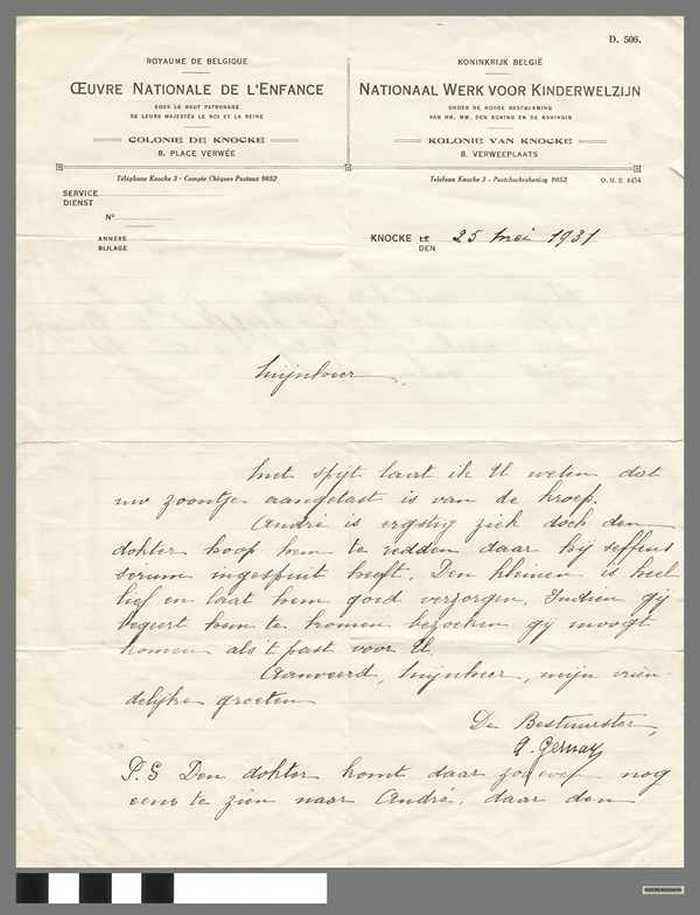 D. 506.
ROYAUME DE BELGIQUE
ŒUVRE NATIONALE DE L'ENFANCE
SOUS LE HAUT PATRONAGE
DE LEURS MAJESTÉS LE ROI ET LA REINE
COLONIE DE KNOCKE
8, PLACE VERWÉE
Téléphone Knocke 3 - Compte Chèques Postaux 9852
KONINKRIJK BELGIË
NATIONAAL WERK VOOR KINDERWELZIJN
ONDER DE HOOGE BESCHERMING
VAN HH. MM. DEN KONING EN DE KONINGIN
KOLONIE VAN KNOCKE
8, VERWEEPLAATS
Telefoon Knocke 3 - Postcheckrekening 9852
O. N. E. 6454
SERVICE
DIENST
N°
ANNEXE
BIJLAGE
KNOCKE LE
DEN
25 Mei 1931
Mijnheer
Met spijt laat ik U weten dat
uw zoontje aangetast is van de kroep.
André is ergstig ziek doch den
dokter hoop hem te redden daar hij seffens
serum ingespuit heeft. Den kleinen is heel
lief en laat hem goed verzorgen. Indien gij
begeert hem te komen bezoeken gij moogt
komen als 't past voor U.
Aanveerd, Mijnheer, mijn vrien-
delijke groeten
De Bestuurster,
P.S Den dokter komt daar nog
eens te zien naar André, daar den